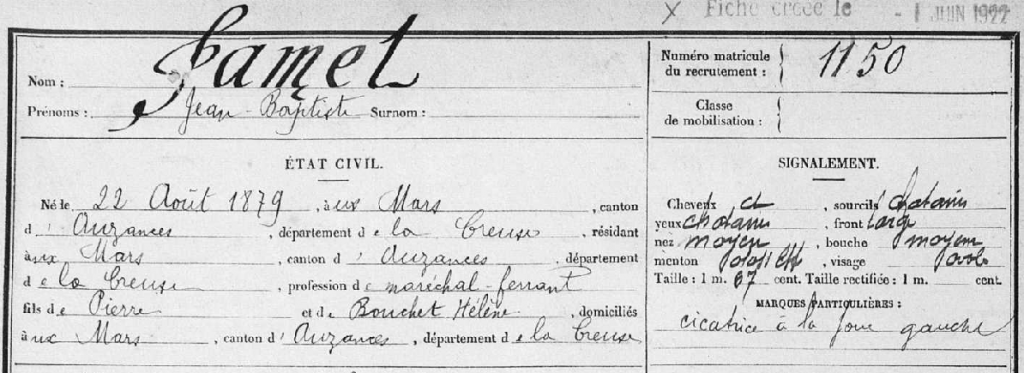 X Fiche créée le - 1 JUIN 1922
Nom : Jamet
Prénoms : Jean-Baptiste Surnom :
Numéro matricule du recrutement : 1150
Classe de mobilisation :
ÉTAT CIVIL.
Né le 22 Août 1879, à ux Mars, canton
d'Auzances, département de la Creuse, résidant
à ux Mars, canton d'Auzances, département
de la Creuse, profession de maréchal-ferrant
fils de Pierre et de Bouchet Hélène, domiciliés
à ux Mars, canton d'Auzances, département de la Creuse
SIGNALEMENT.
Cheveux ct, sourcils chatains
yeux chatains front large
nez moyen, bouche moyenne
menton, visage ovale
Taille : 1 m. 67 cent. Taille rectifiée : 1 m. cent.
MARQUES PARTICULIÈRES :
cicatrice à la joue gauche